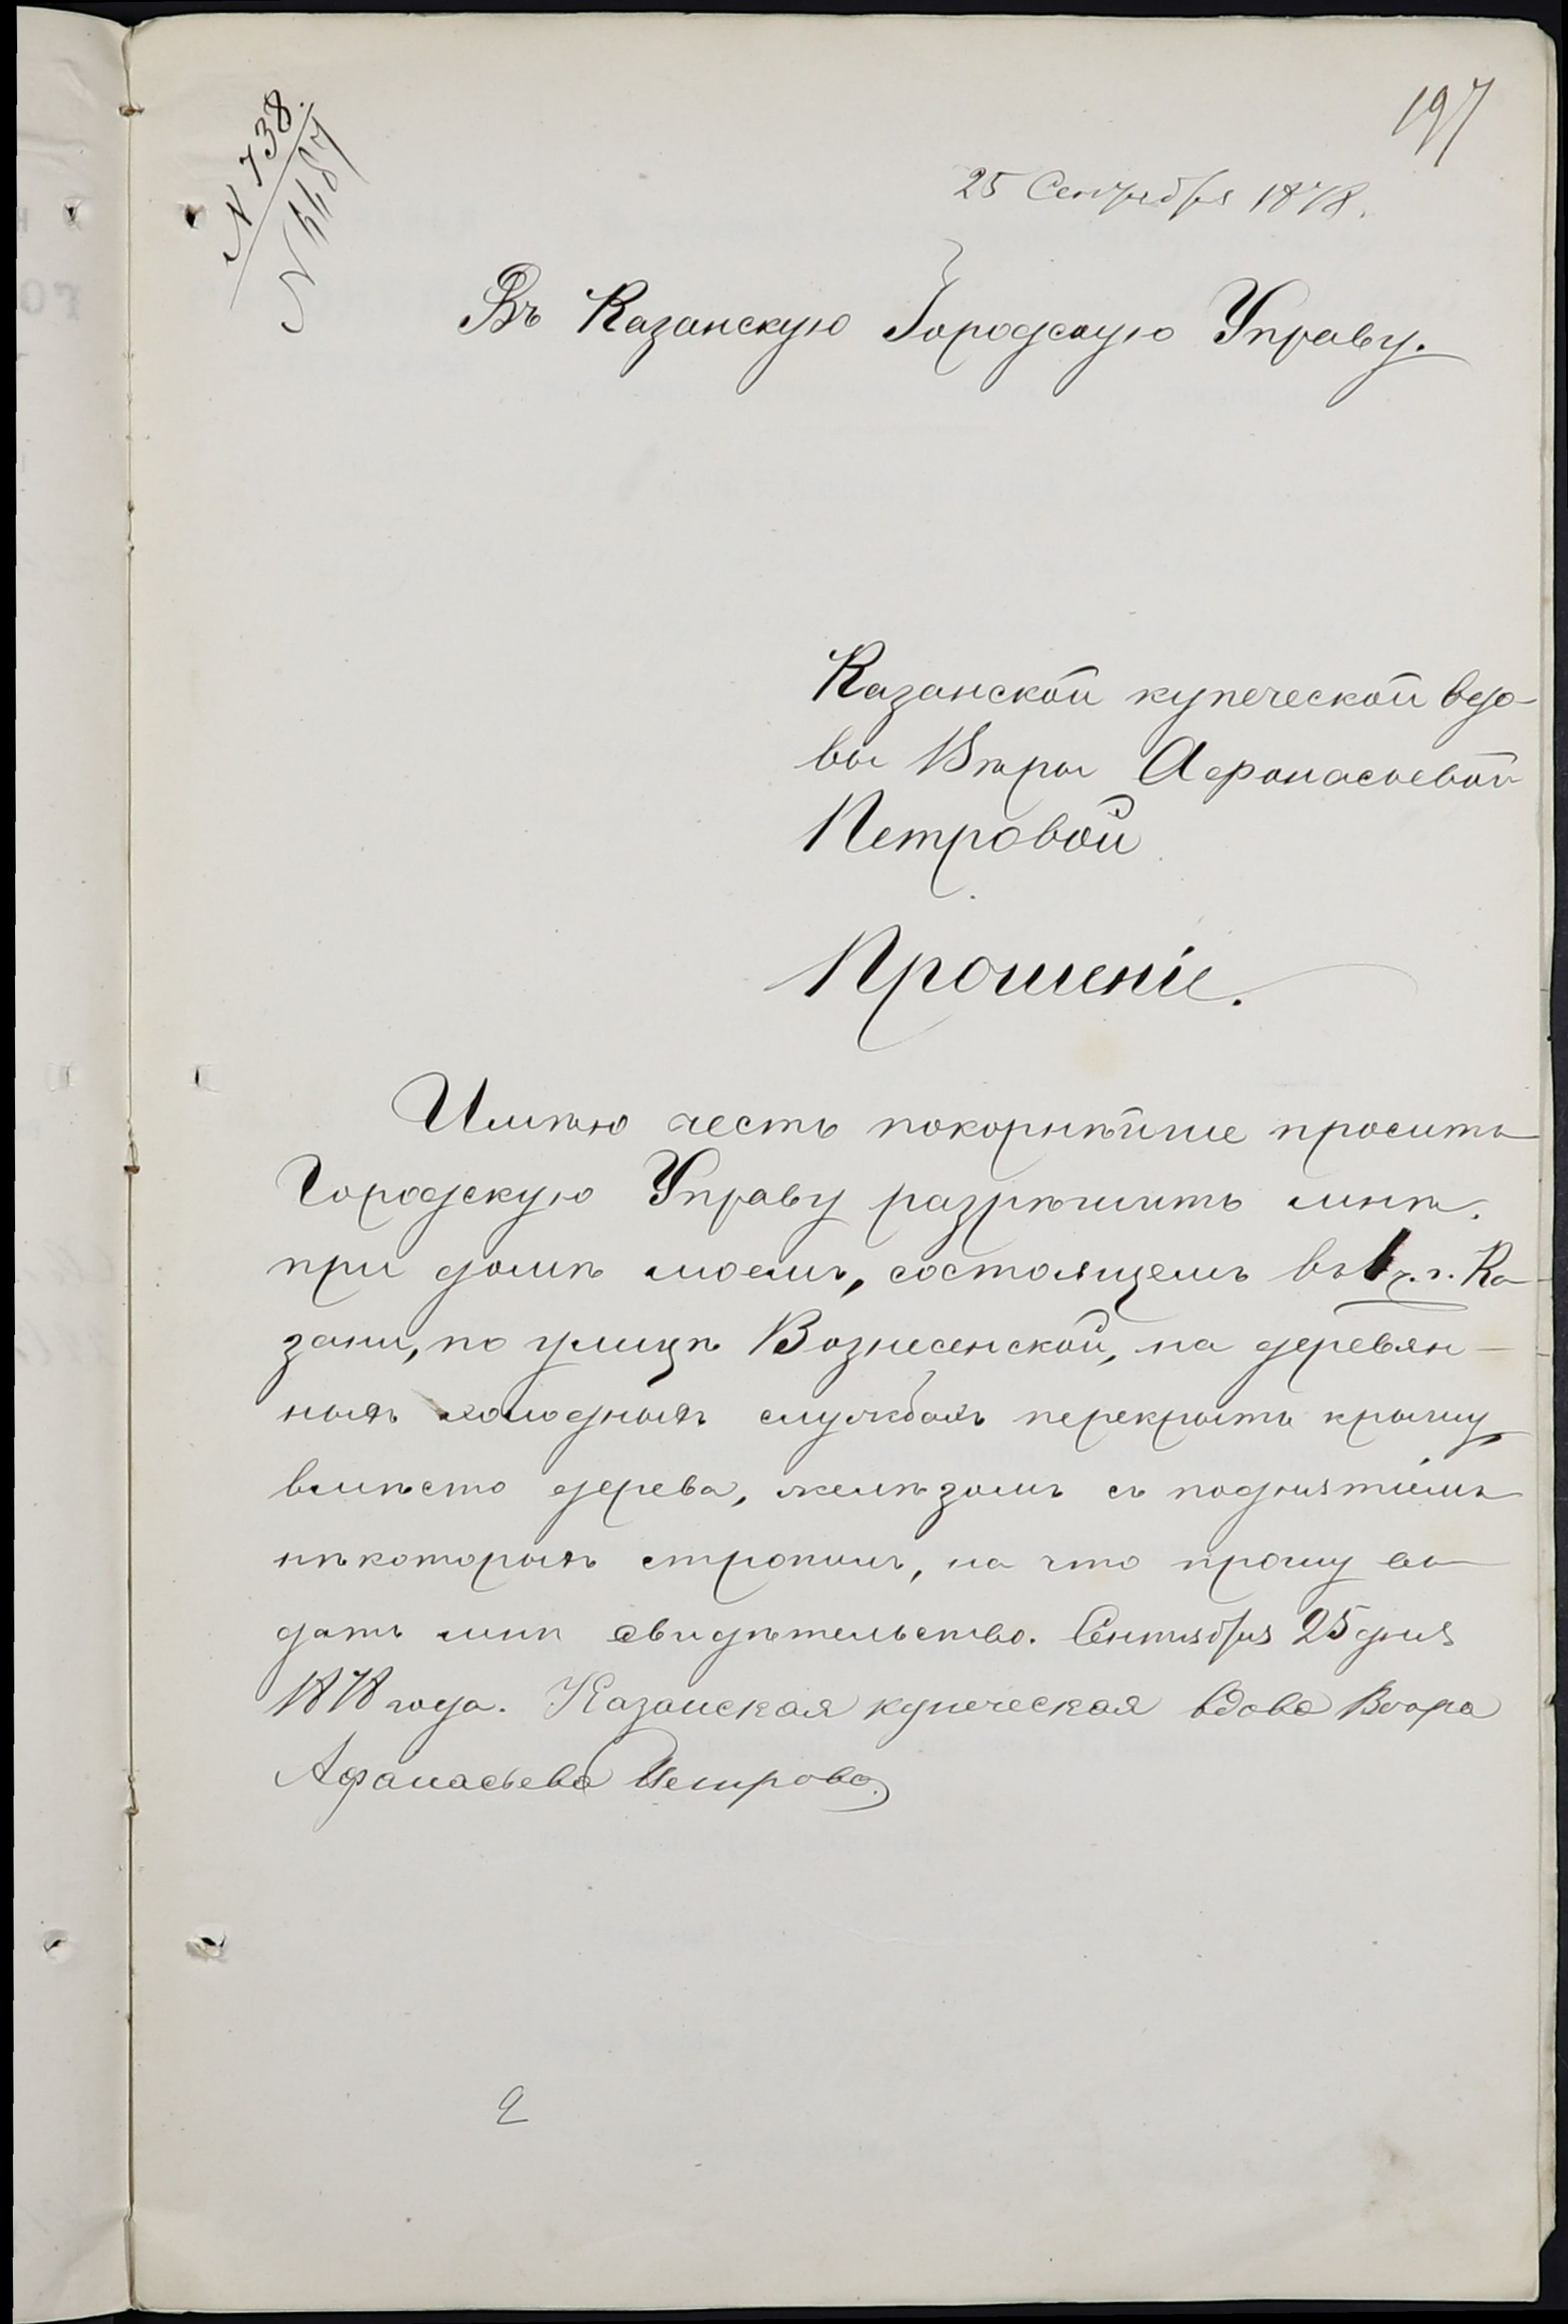 197
N 738.
N 4487
25 Сентября 1878.
Въ Казанскую Городскую Управу.
Казанской купеческой вдо-
вы Вѣры Афонасьевой
Петровой
Прошеніе.
Имѣю честь покорнѣйше просить
Городскую Управу разрѣшить мнѣ.
при домѣ моемъ, состоящемъ въ 1 ч. г. Ка-
зани, по улицѣ Вознесенской, на деревян-
ныхъ холодныхъ службахъ перекрыть крышу,
вмѣсто дерева, желѣзомъ съ поднятіемъ
нѣкоторыхъ стропилъ, на что прошу вы-
дать мнѣ свидѣтельство. Сентября 25 дня
1878 года. Казанская купеческая вдова Вѣра
Афанасьева Петрова.
2